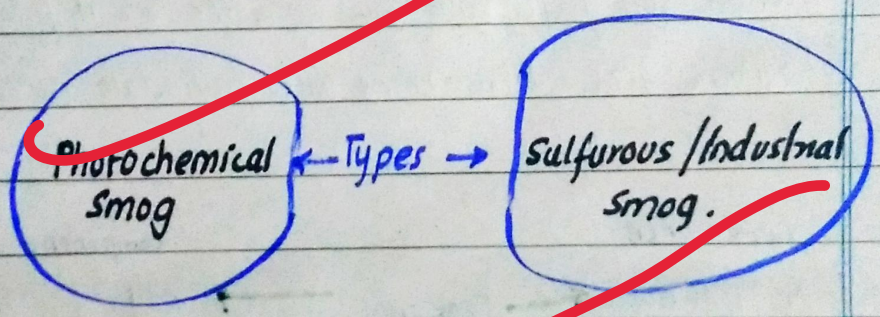 Photochemical
Smog
Types
Sulfurous / Industrial
Smog.